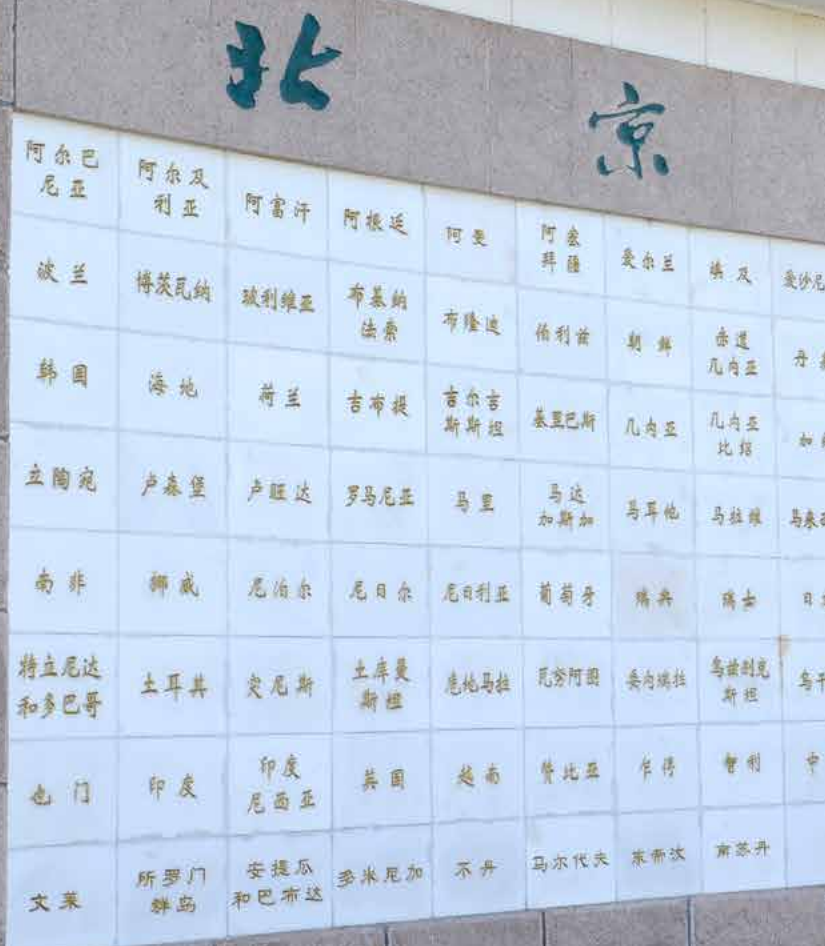 北京
阿尔巴
尼亚
阿尔及
利亚
阿富汗
阿根廷
阿曼
阿塞
拜疆
爱尔兰
埃及
爱沙尼
波兰
博茨瓦纳
玻利维亚
布基纳
法索
布隆迪
伯利兹
朝鲜
赤道
几内亚
丹
韩国
海地
荷兰
吉布提
吉尔吉
斯斯坦
基里巴斯
几内亚
几内亚
比绍
加
立陶宛
卢森堡
卢旺达
罗马尼亚
马里
马达
加斯加
马耳他
马拉维
马来
南非
挪威
尼泊尔
尼日尔
尼日利亚
葡萄牙
瑞典
瑞士
日
特立尼达
和多巴哥
土耳其
突尼斯
土库曼
斯坦
危地马拉
瓦努阿图
委内瑞拉
乌兹别克
斯坦
乌干
也门
印度
印度
尼西亚
英国
越南
赞比亚
乍得
智利
中
文莱
所罗门
群岛
安提瓜
和巴布达
多米尼加
不丹
马尔代夫
东帝汶
南苏丹